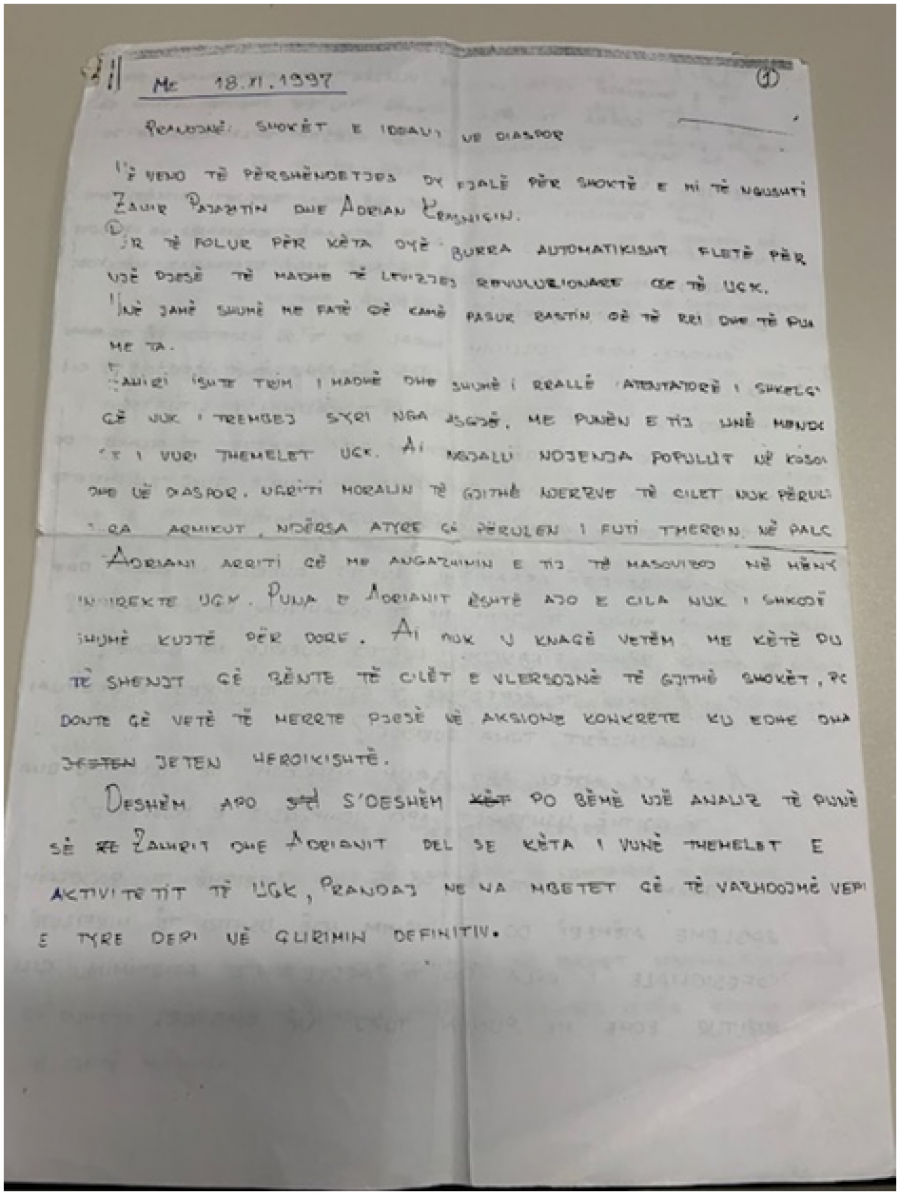 ME 18.XI.1997
1
PRANOJNË: SHOKËT E IDEALIT NË DIASPOR
NË VEND TË PËRSHËNDETJES DY FJALË PËR SHOKTË E MI TË NGUSHTI
ZAHIR PAJAZITIN DHE ADRIAN KRASNIQIN.
PËR TË FOLUR PËR KËTA DYË BURRA AUTOMATIKISHT FLETË PËR
NJË PJESË TË MADHE TË LEVIZJES REVULUZIONARE OSE TË UÇK.
UNË JAMË SHUMË ME FATË QË KAMË PASUR BASTIN QË TË RRI DHE TË PUN
ME TA.
ZAHIRI ISHTE TRIM I MADHË DHE SHUMË I RRALLË ATENTATORË I SHKELQ
QË NUK I TREMBEJ SYRI NGA ASGJË. ME PUNËN E TIJ UNË MENDO
I VURI THEMELET UÇK. AI NGJALLI NDJENJA POPULLIT NË KOSO
DHE NË DIASPOR. NGRITI MORALIN TË GJITHË NJERZVE TË CILET NUK PËRUL
RA ARMIKUT, NDËRSA ATYRE QË PËRULEN I FUTI TMERRIN NË PALC
ADRIANI ARRITI QË ME ANGAZHIMIN E TIJ TË MASOVIZOJ NË MËNY
INDIREKTE UÇK. PUNA E ADRIANIT ËSHTË AJO E CILA NUK I SHKOJË
SHUMË KUJTË PËR DORE. AI NUK U KNAQË VETËM ME KËTË PU
TË SHENJT QË BËNTE TË CILËT E VLERSOJNË TË GJITHË SHOKËT, PO
DONTE QË VETË TË MERRTE PJESË NË AKSIONE KONKRETE KU EDHE DHA
JESTEN JETEN HEROIKISHTË.
DESHËM APO S'DESHËM KËT PO BËMË NJË ANALIZ TË PUNË
SË ZAHIRIT DHE ADRIANIT DEL SE KËTA I VUNË THEMELET E
AKTIVITETIT TË UÇK, PRANDAJ NE NA MBETET QË TË VAZHDOJMË VEPR
E TYRE DERI NË GLIRIMIN DEFINITIV.